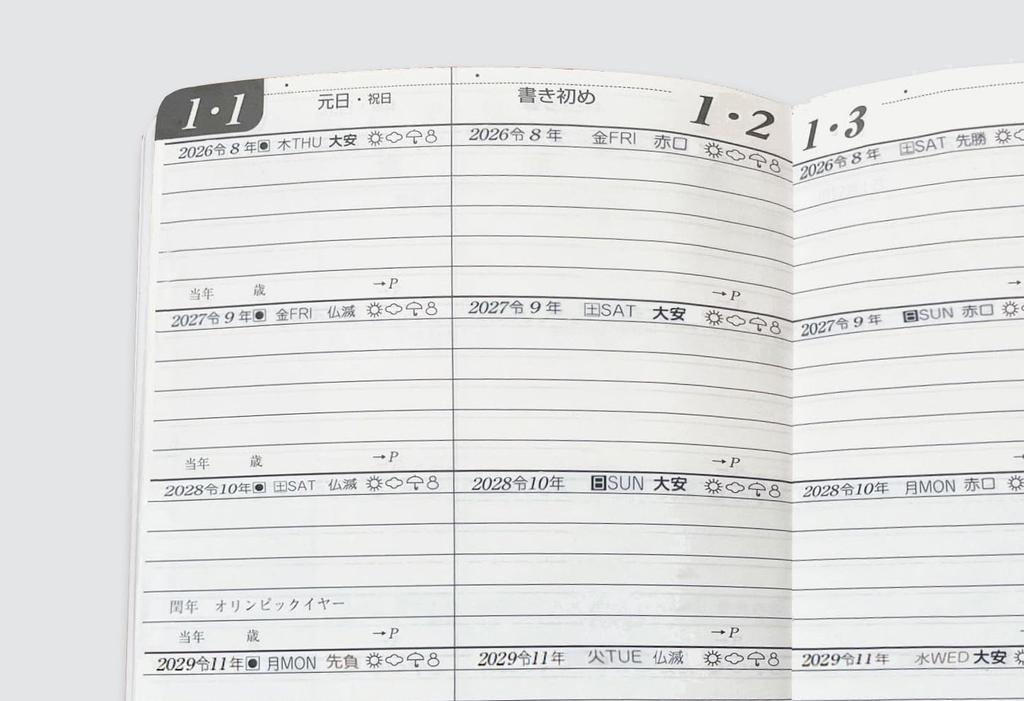 1・1
元日・祝日
2026令8年 木THU 大安
当年 歳 →P
2027令9年 金FRI 仏滅
当年 歳 →P
2028令10年 土SAT 仏滅
閏年 オリンピックイヤー
当年 歳 →P
2029令11年 月MON 先負
書き初め
1・2
2026令8年 金FRI 赤口
→P
2027令9年 土SAT 大安
→P
2028令10年 日SUN 大安
→P
2029令11年 火TUE 仏滅
1・3
2026令8年 土SAT 先勝
2027令9年 日SUN 赤口
2028令10年 月MON 赤口
2029令11年 水WED 大安